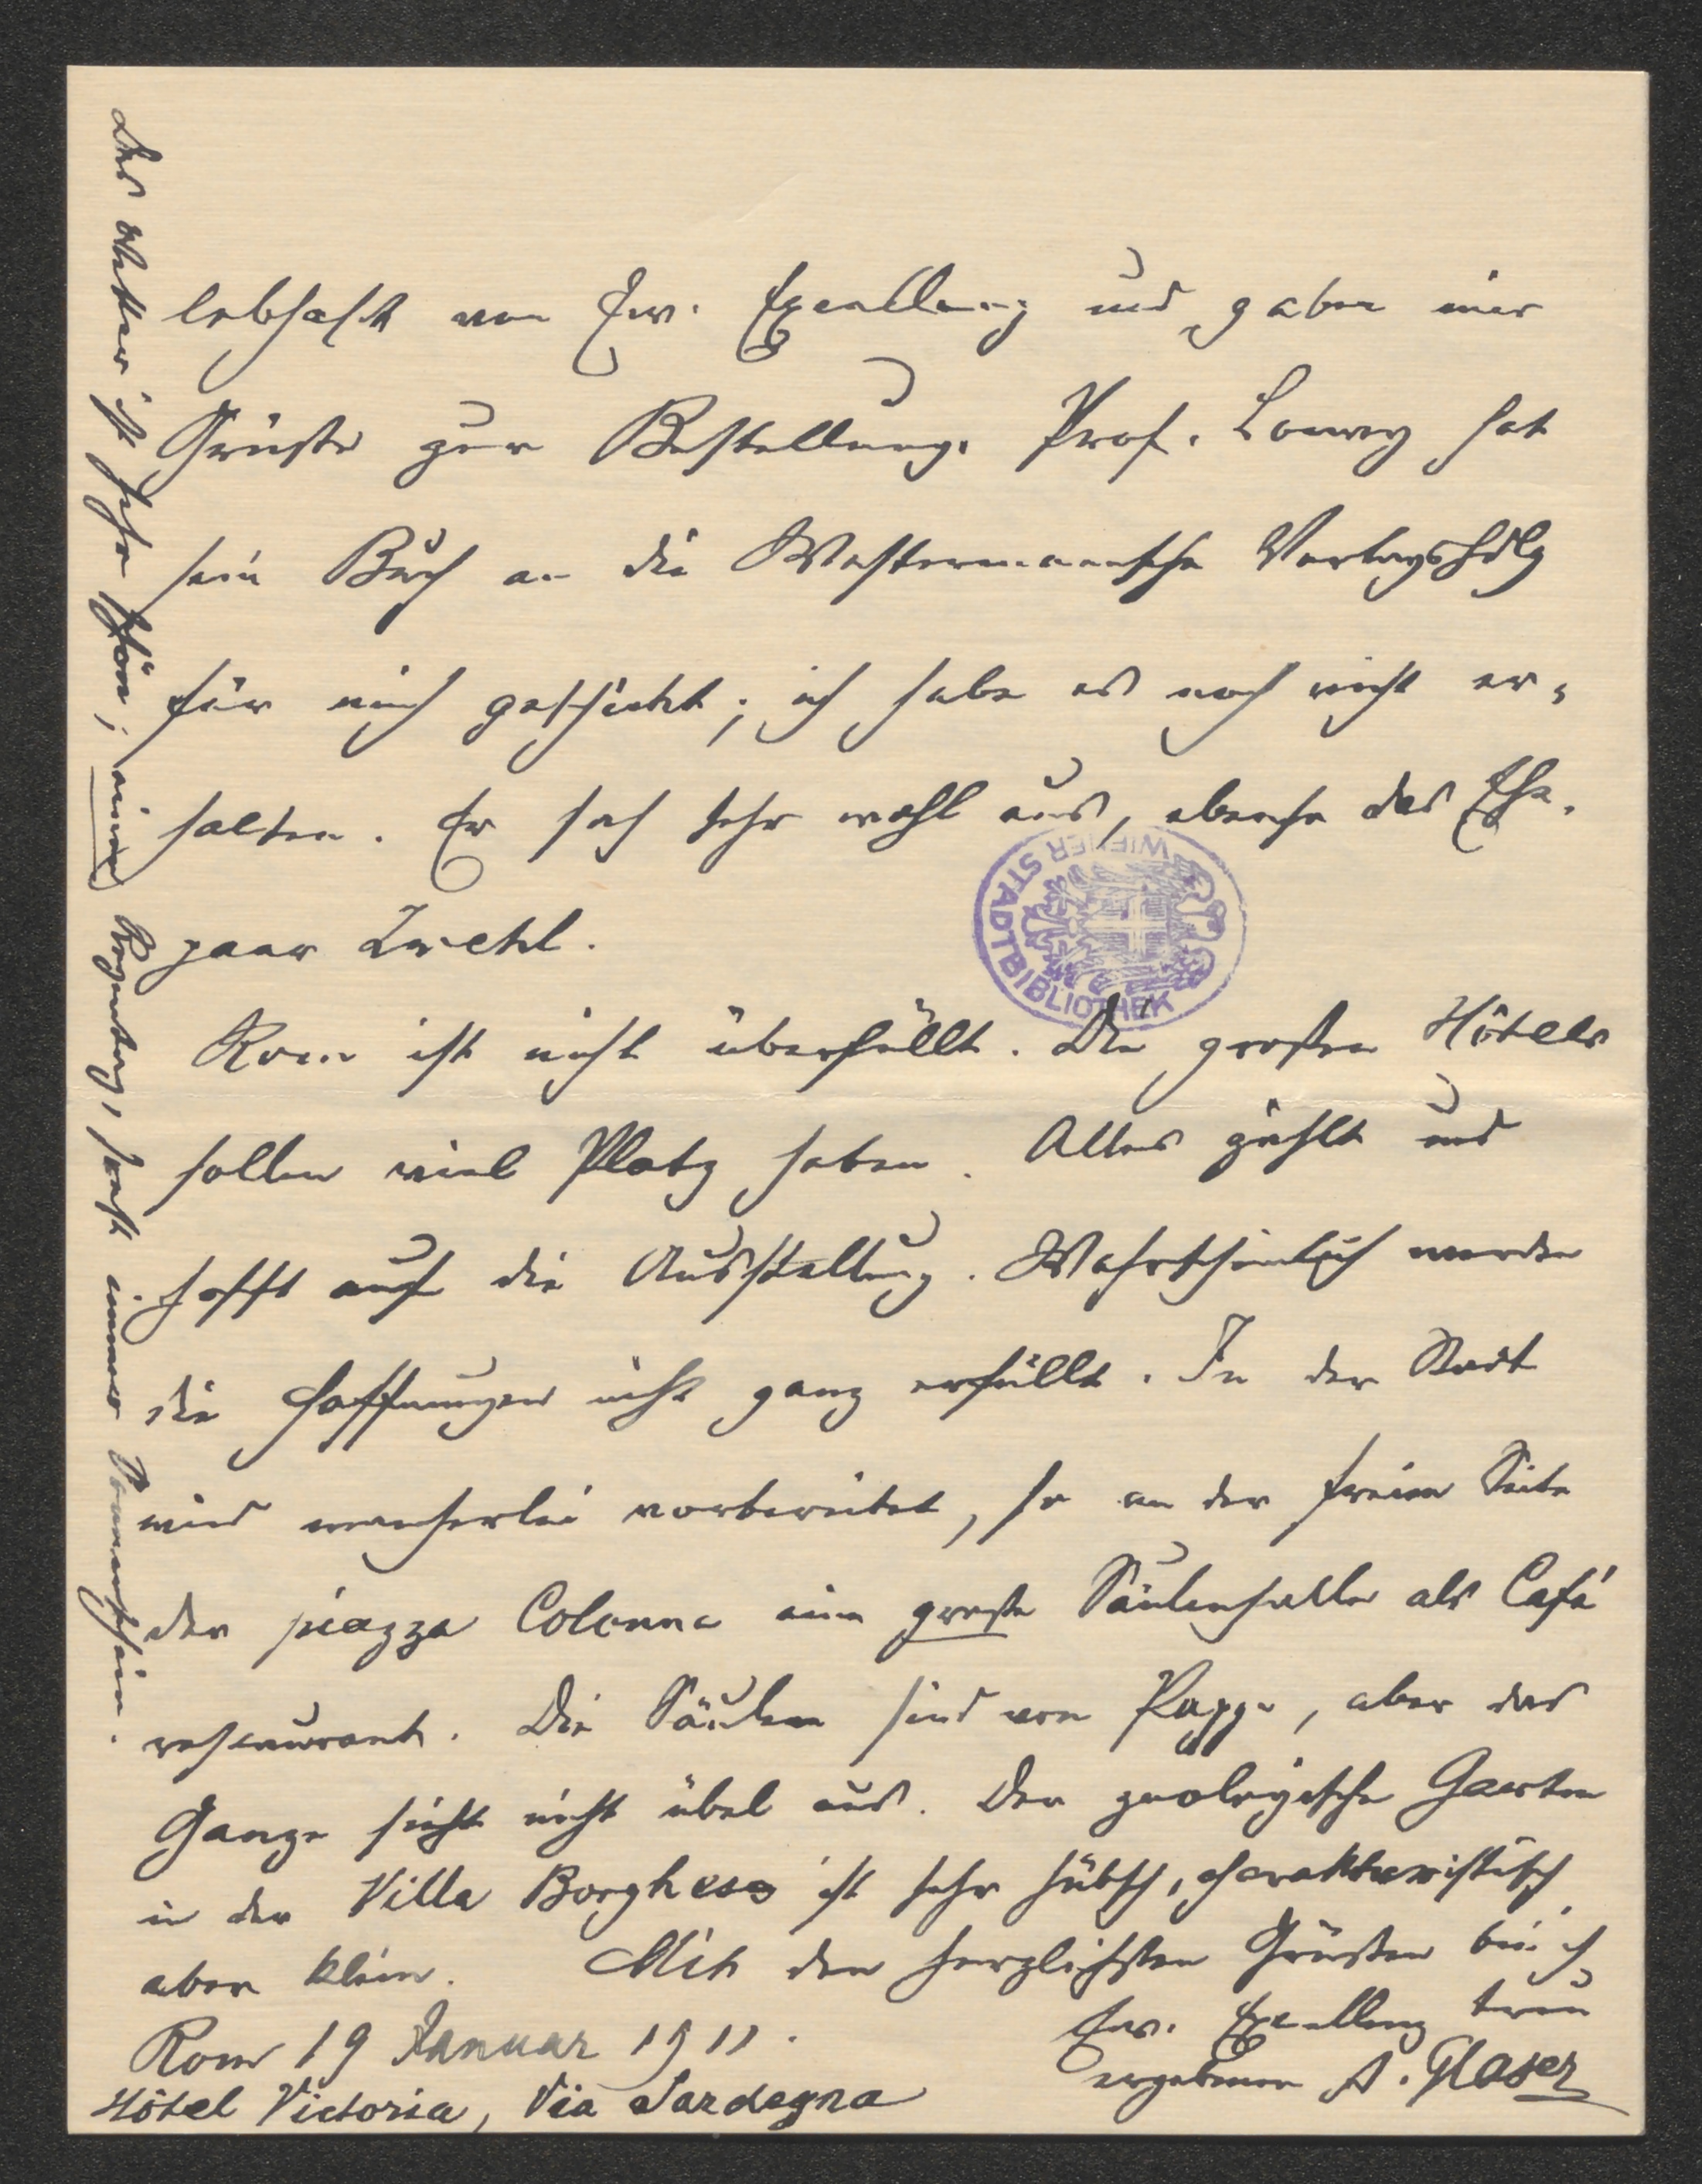 lebhaft von Ew. Excellenz und gaben mir
Grüße zur Bestellung. Prof. Loewy hat
sein Buch an die Westermannsche Verlagshdlg
für mich geschickt; ich habe es noch nicht er-
halten. Er sah sehr wohl aus, ebenso das Ehe-
paar Zwehl.
Rom ist nicht überfüllt. Die großen Hôtels
sollen viel Platz haben. Alles zählt und
hofft auf die Ausstellung. Wahrscheinlich werden
die Hoffnungen nicht ganz erfüllt. In der Stadt
wird mancherlei vorbereitet, so an der freien Seite
der piazza Colonna eine große Säulenhalle als Café
restaurant. Die Säulen sind von Pappe, aber das
Ganze sieht nicht übel aus. Der zoologische Garten
in der Villa Borghese ist sehr hübsch, charakteristisch
aber klein. Mit den herzlichsten Grüßen bin ich
Ew. Excellenz treu
ergebener A. Glaser
Rom 19 Januar 1911.
Hôtel Victoria, Via Sardegna
Das Wetter ist sehr schön; einen Regentag, sonst immer Sonnenschein.
WIENER STADTBIBLIOTHEK